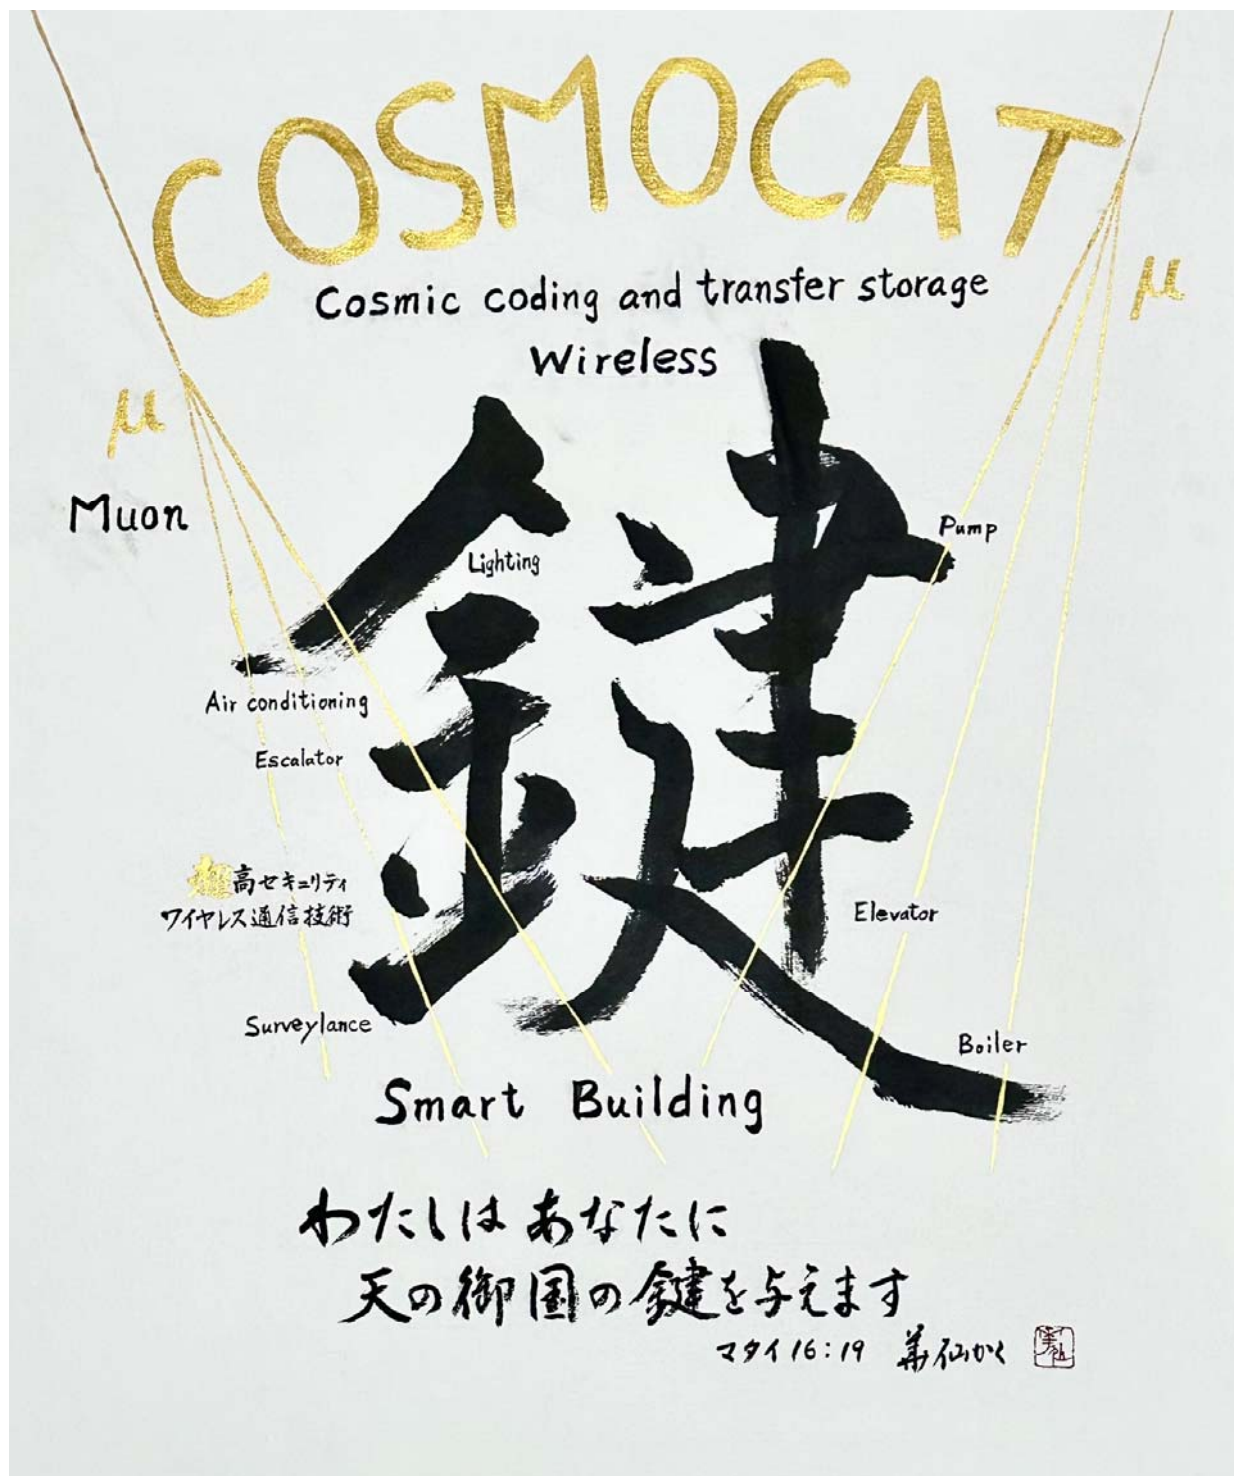 COSMOCAT
Cosmic coding and transfer storage
Wireless
μ
μ
Muon
鍵
Lighting
Pump
Air conditioning
Escalator
超高セキュリティ
ワイヤレス通信技術
Elevator
Surveylance
Boiler
Smart Building
わたしは あなたに
天の御国の鍵を与えます
マタイ 16:19 華仙かく